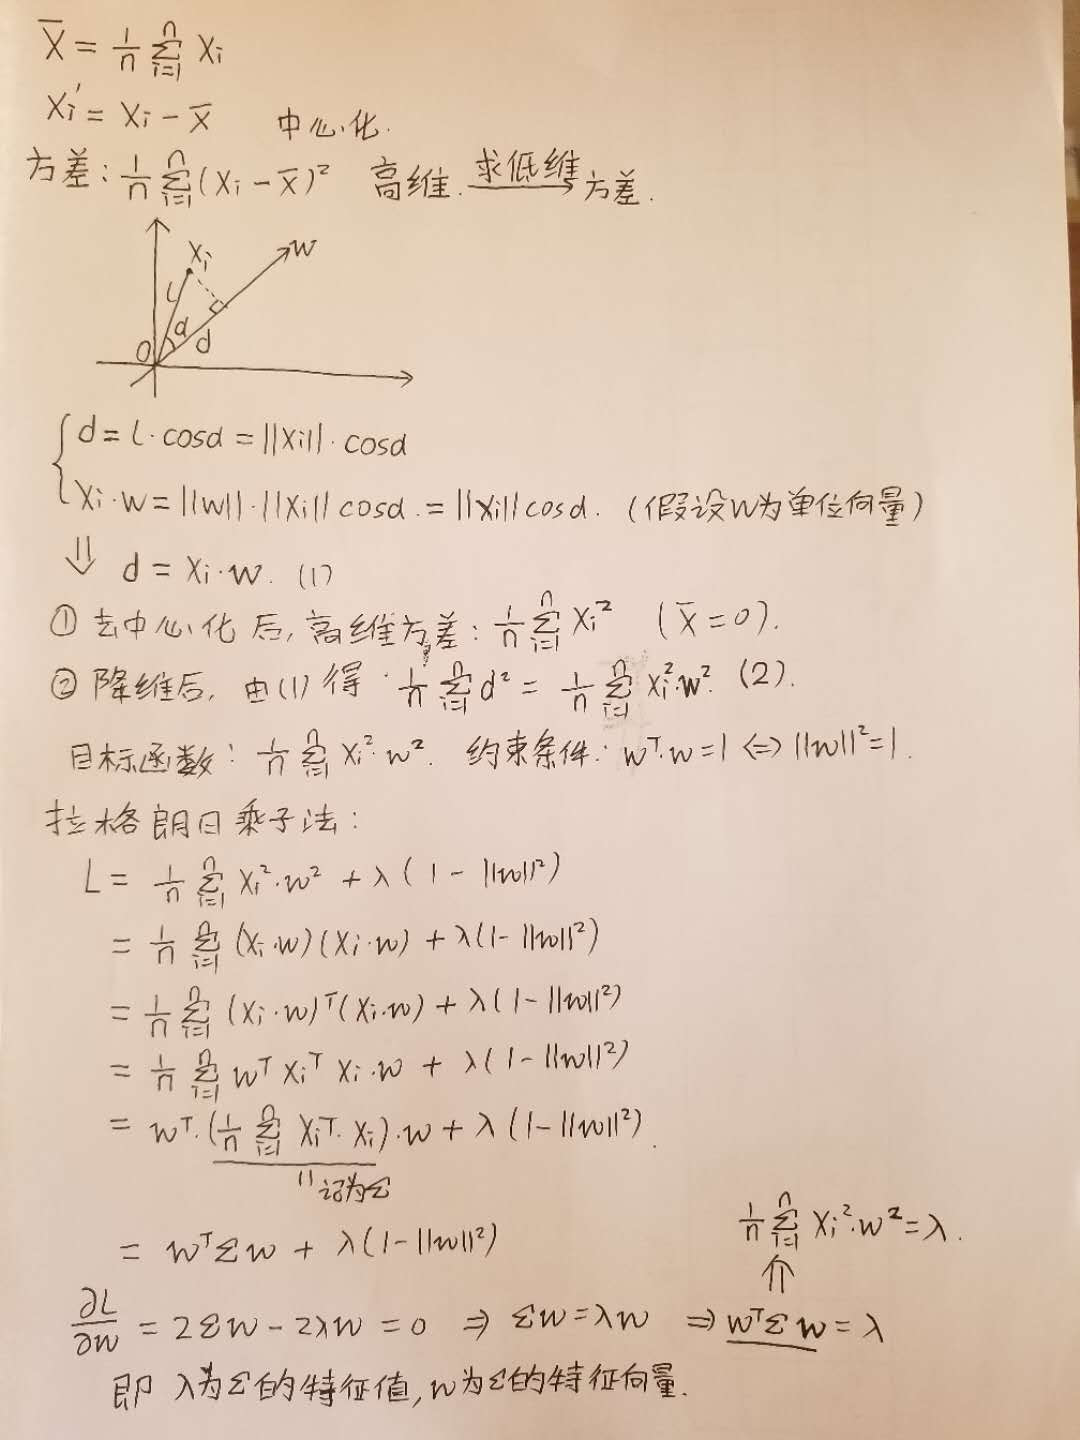 X̄ = 1/n ∑_{i=1}^{n} Xi
Xi' = Xi - X̄ 中心化.
方差: 1/n ∑_{i=1}^{n} (Xi - X̄)² 高维. 求低维→ 方差.
Xi
w
l
α
d
O
{ d = l·cosα = ||Xi||·cosα
Xi·w = ||w||·||Xi|| cosα. = ||Xi|| cosα. (假设w为单位向量)
⇓ d = Xi·w. (1)
① 去中心化后, 高维方差: 1/n ∑_{i=1}^{n} Xi² (X̄ = 0).
② 降维后, 由(1)得: 1/n ∑_{i=1}^{n} d² = 1/n ∑_{i=1}^{n} Xi²·w². (2).
目标函数: 1/n ∑_{i=1}^{n} Xi²·w². 约束条件: wᵀ·w = 1 ⇔ ||w||² = 1.
拉格朗日乘子法:
L = 1/n ∑_{i=1}^{n} Xi²·w² + λ(1 - ||w||²)
= 1/n ∑_{i=1}^{n} (Xi·w)(Xi·w) + λ(1 - ||w||²)
= 1/n ∑_{i=1}^{n} (Xi·w)ᵀ(Xi·w) + λ(1 - ||w||²)
= 1/n ∑_{i=1}^{n} wᵀ Xiᵀ Xi·w + λ(1 - ||w||²)
= wᵀ·(1/n ∑_{i=1}^{n} Xiᵀ·Xi)·w + λ(1 - ||w||²).
|| 记为Σ
= wᵀΣw + λ(1 - ||w||²)
1/n ∑_{i=1}^{n} Xi²·w² = λ.
⇑
∂L/∂w = 2Σw - 2λw = 0 ⇒ Σw = λw ⇒ wᵀΣw = λ
即 λ为Σ的特征值, w为Σ的特征向量.